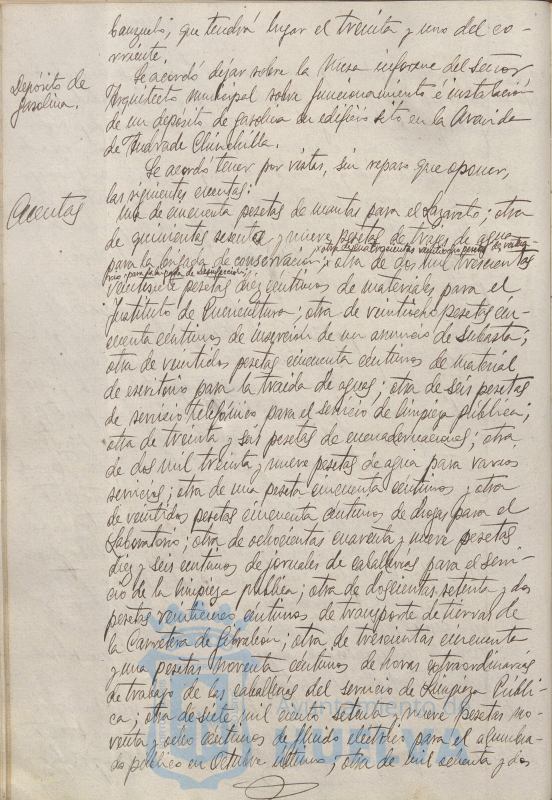 banzuelo, que tendrá lugar el treinta y uno del co-
rriente.
Depósito de
gasolina.
Se acordó dejar sobre la Mesa informe del señor
Arquitecto municipal sobre funcionamiento é instalación
de un depósito de gasolina en edificio sito en la Avenida
de Andrade Chinchilla.
Se acordó tener por vistas, sin reparo que oponer,
las siguientes cuentas:
Cuentas
una de cincuenta pesetas de mantas para el Lazareto; otra
de quinientas sesenta y nueve pesetas de trajes de agua
para la brigada de conservación; otra de dos mil trescientas
para la brigada de desinfección;
veintisiete pesetas diez céntimos de materiales para el
Instituto de Puericultura; otra de veintiocho pesetas cin-
cuenta céntimos de inserción de un anuncio de subasta;
otra de veintidos pesetas cincuenta céntimos de material
de escritorio para la traida de aguas; otra de seis pesetas
de servicio telefónico para el servicio de limpieza pública;
otra de treinta y seis pesetas de encuadernaciones; otra
de dos mil treinta y nueve pesetas de agua para varios
servicios; otra de una peseta cincuenta céntimos y otra
de veintidos pesetas cincuenta céntimos de drogas para el
Laboratorio; otra de ochocientas cuarenta y nueve pesetas
diez y seis céntimos de jornales de caballerías para el servi-
cio de la limpieza pública; otra de doscientas setenta y dos
pesetas veinticinco céntimos de transporte de tierras de
la Carretera de Gibraleon; otra de trescientas cincuenta
y una pesetas noventa céntimos de horas extraordinarias
de trabajo de las caballerías del servicio de Limpieza Públi-
ca; otra de siete mil ciento setenta y nueve pesetas no-
venta y ocho céntimos de fluido eléctrico para el alumbra-
do público en Octubre último; otra de mil sesenta y dos
Ayuntamiento de
HUELVA